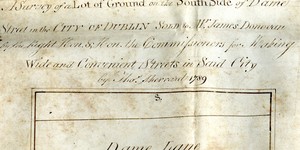 A Survey of a Lot of Ground on the South Side of Dame
Street in the CITY OF DUBLIN Sold by Mr. James Donovan
by the Right Hon. & Hon. the Commissioners for Making
Wide and Convenient Streets in Said City
by Thos. Sherrard 1789
Dame Lane